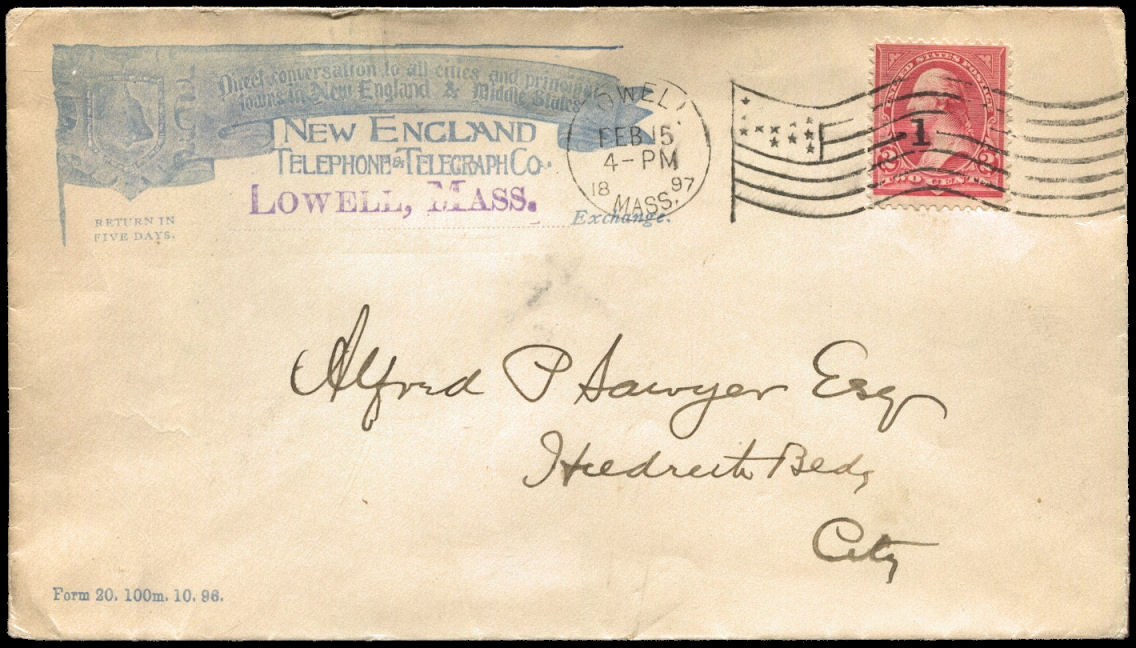 Direct conversation to all cities and principal
towns in New England & Middle States
NEW ENGLAND
TELEPHONE & TELEGRAPH CO.
LOWELL, MASS.
Exchange.
RETURN IN
FIVE DAYS.
LOWELL
FEB 15
4-PM
18 97
MASS.
UNITED STATES POSTAGE
1
2 2
TWO CENTS
Alfred P Sawyer Esq
Hildreth Bldg
City
Form 20. 100m. 10. 96.